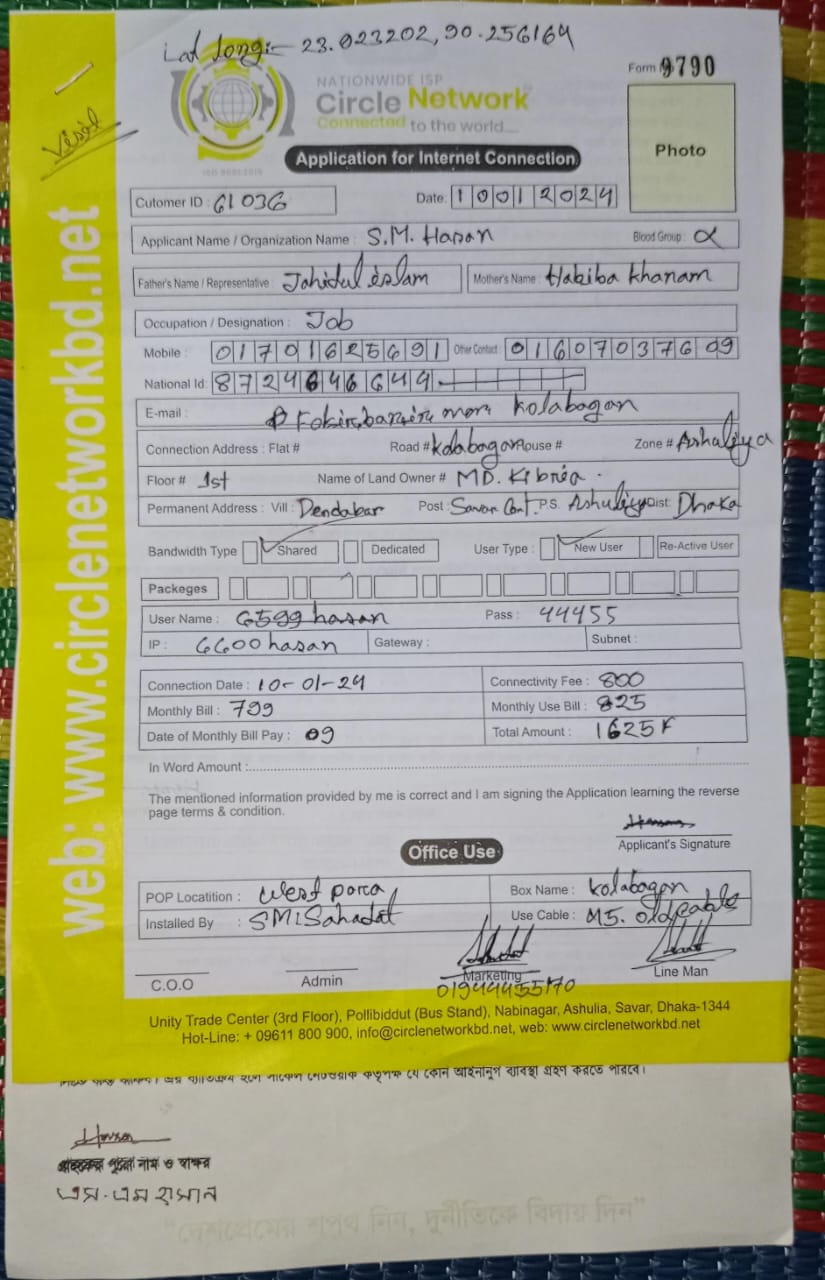 Lat Long:- 23.023202, 90.256164
Form 9790
NATIONWIDE ISP
Circle Network
Connected to the world....
Photo
Application for Internet Connection
web: www.circlenetworkbd.net
Cutomer ID : 61036 Date: 10012024
Applicant Name / Organization Name : S.M. Hasan Blood Group :
Father's Name / Representative : Jahidul islam Mother's Name : Habiba Khanam
Occupation / Designation : Job
Mobile : 01701625691 Other Contact : 01607037609
National Id: 8724646649
E-mail : Kolabagan
Connection Address : Flat # Road # Kolabagan House # Zone # Ashuliya
Floor # 1st Name of Land Owner # MD. Kibria .
Permanent Address : Vill : Dendabar Post : Savar Cant. P.S. Ashuliya Dist: Dhaka
Bandwidth Type Shared Dedicated User Type : New User Re-Active User
Packeges
User Name : 6599hasan Pass : 44455
IP : 6600hasan Gateway : Subnet :
Connection Date : 10-01-24 Connectivity Fee : 800
Monthly Bill : 799 Monthly Use Bill : 825
Date of Monthly Bill Pay : 09 Total Amount : 1625
In Word Amount :
The mentioned information provided by me is correct and I am signing the Application learning the reverse
page terms & condition.
Applicant's Signature
Office Use
POP Locatition : West para Box Name : Kolabagan
Installed By : SMI Sahadat Use Cable : M5. old cable
C.O.O Admin Marketing Line Man
Unity Trade Center (3rd Floor), Pollibiddut (Bus Stand), Nabinagar, Ashulia, Savar, Dhaka-1344
Hot-Line: + 09611 800 900, info@circlenetworkbd.net, web: www.circlenetworkbd.net
যে কোন আইনানুগ ব্যবস্থা গ্রহণ করতে পারবে।
Hasan
নাম ও স্বাক্ষর
এস.এম হাসান
"দেশপ্রেমের শপথ নিন, দুর্নীতিকে বিদায় দিন"